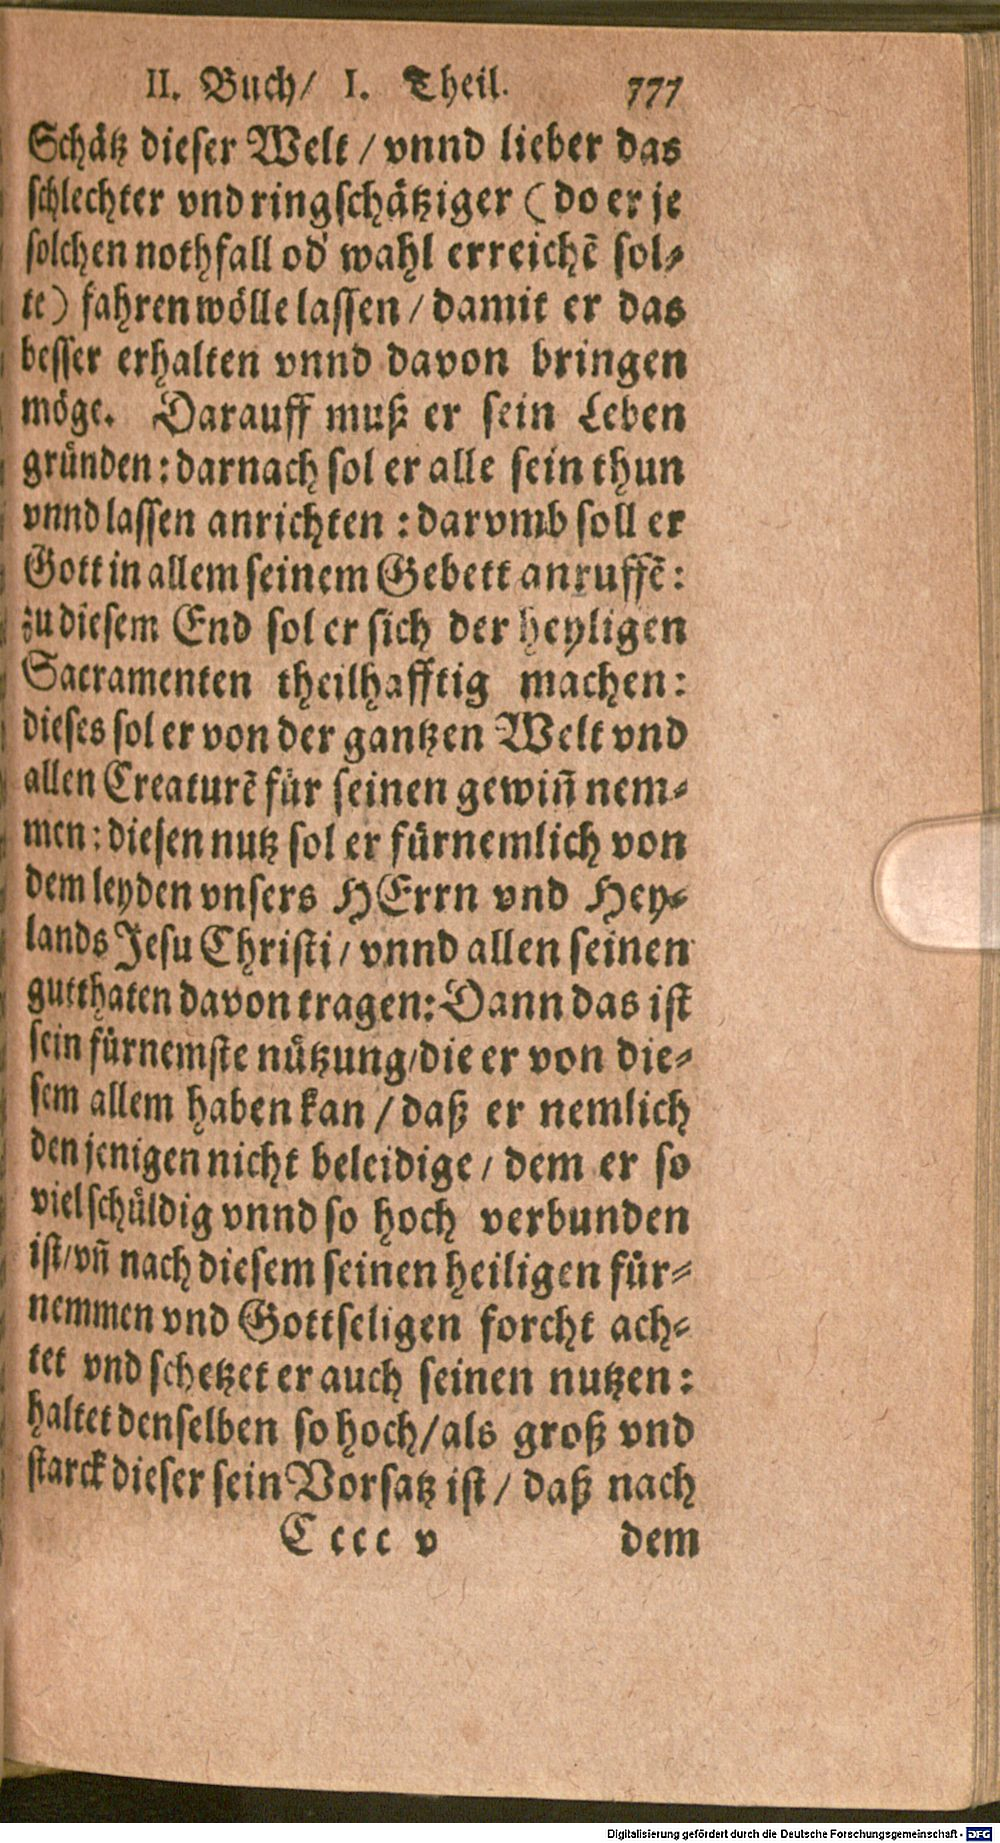 II. Buch/ I. Theil. 777
Schätz dieser Welt / vnnd lieber das
schlechter vnd ringschätziger (do er je
solchen nothfall od' wahl erreichẽ sol⸗
te) fahren wölle lassen / damit er das
besser erhalten vnnd davon bringen
möge. Darauff muß er sein Leben
gründen: darnach sol er alle sein thun
vnnd lassen anrichten : darvmb soll er
Gott in allem seinem Gebett anruffẽ:
zu diesem End sol er sich der heyligen
Sacramenten theilhafftig machen:
dieses sol er von der gantzen Welt vnd
allen Creaturẽ für seinen gewiñ nem⸗
men: diesen nutz sol er fürnemlich von
dem leyden vnsers HErrn vnd Hey⸗
lands Jesu Christi / vnnd allen seinen
gutthaten davon tragen: Dann das ist
sein fürnemste nützung/ die er von die⸗
sem allem haben kan / daß er nemlich
den jenigen nicht beleidige / dem er so
viel schüldig vnnd so hoch verbunden
ist/ vñ nach diesem seinen heiligen für⸗
nemmen vnd Gottseligen forcht ach⸗
tet vnd schetzet er auch seinen nutzen:
haltet denselben so hoch/ als groß vnd
starck dieser sein Vorsatz ist / daß nach
C c c c v dem
Digitalisierung gefördert durch die Deutsche Forschungsgemeinschaft - DFG